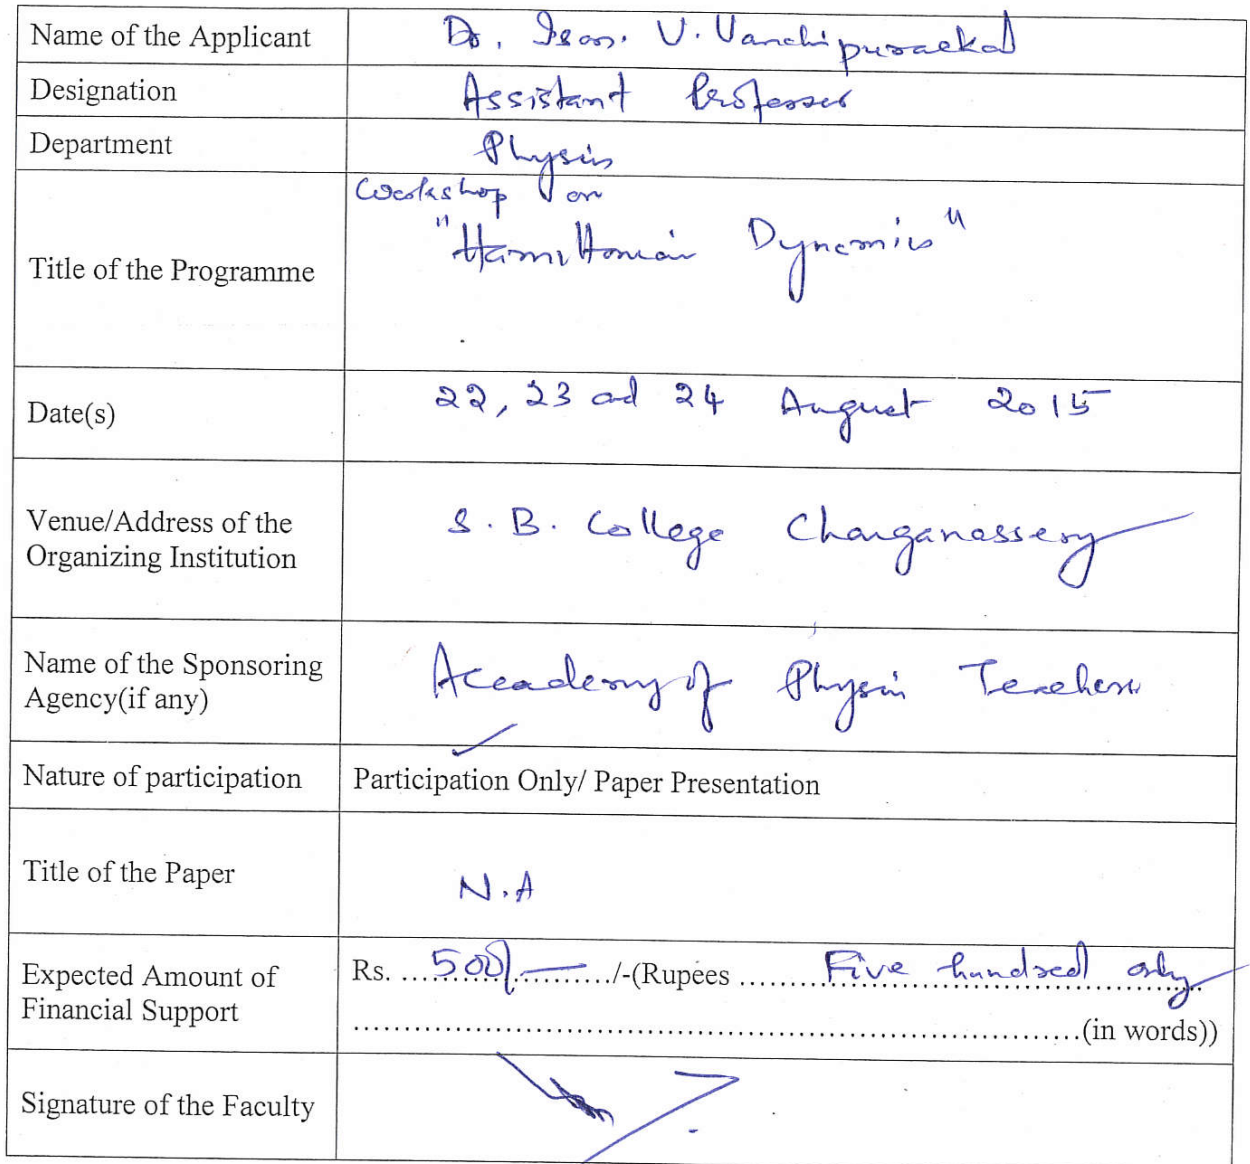 Name of the Applicant Dr. Ison. V. Vanchipurackal
Designation Assistant Professor
Department Physics
Workshop on
Title of the Programme "Hamiltonian Dynamics"
Date(s) 22, 23 and 24 August 2015
Venue/Address of the
Organizing Institution
S. B. College Changanassery
Name of the Sponsoring
Agency(if any)
Accademy of Physics Teachers
Nature of participation Participation Only/ Paper Presentation
Title of the Paper N.A
Expected Amount of
Financial Support
Rs. ....500/-........./-(Rupees ......... Five hundred only
....................................................................(in words))
Signature of the Faculty